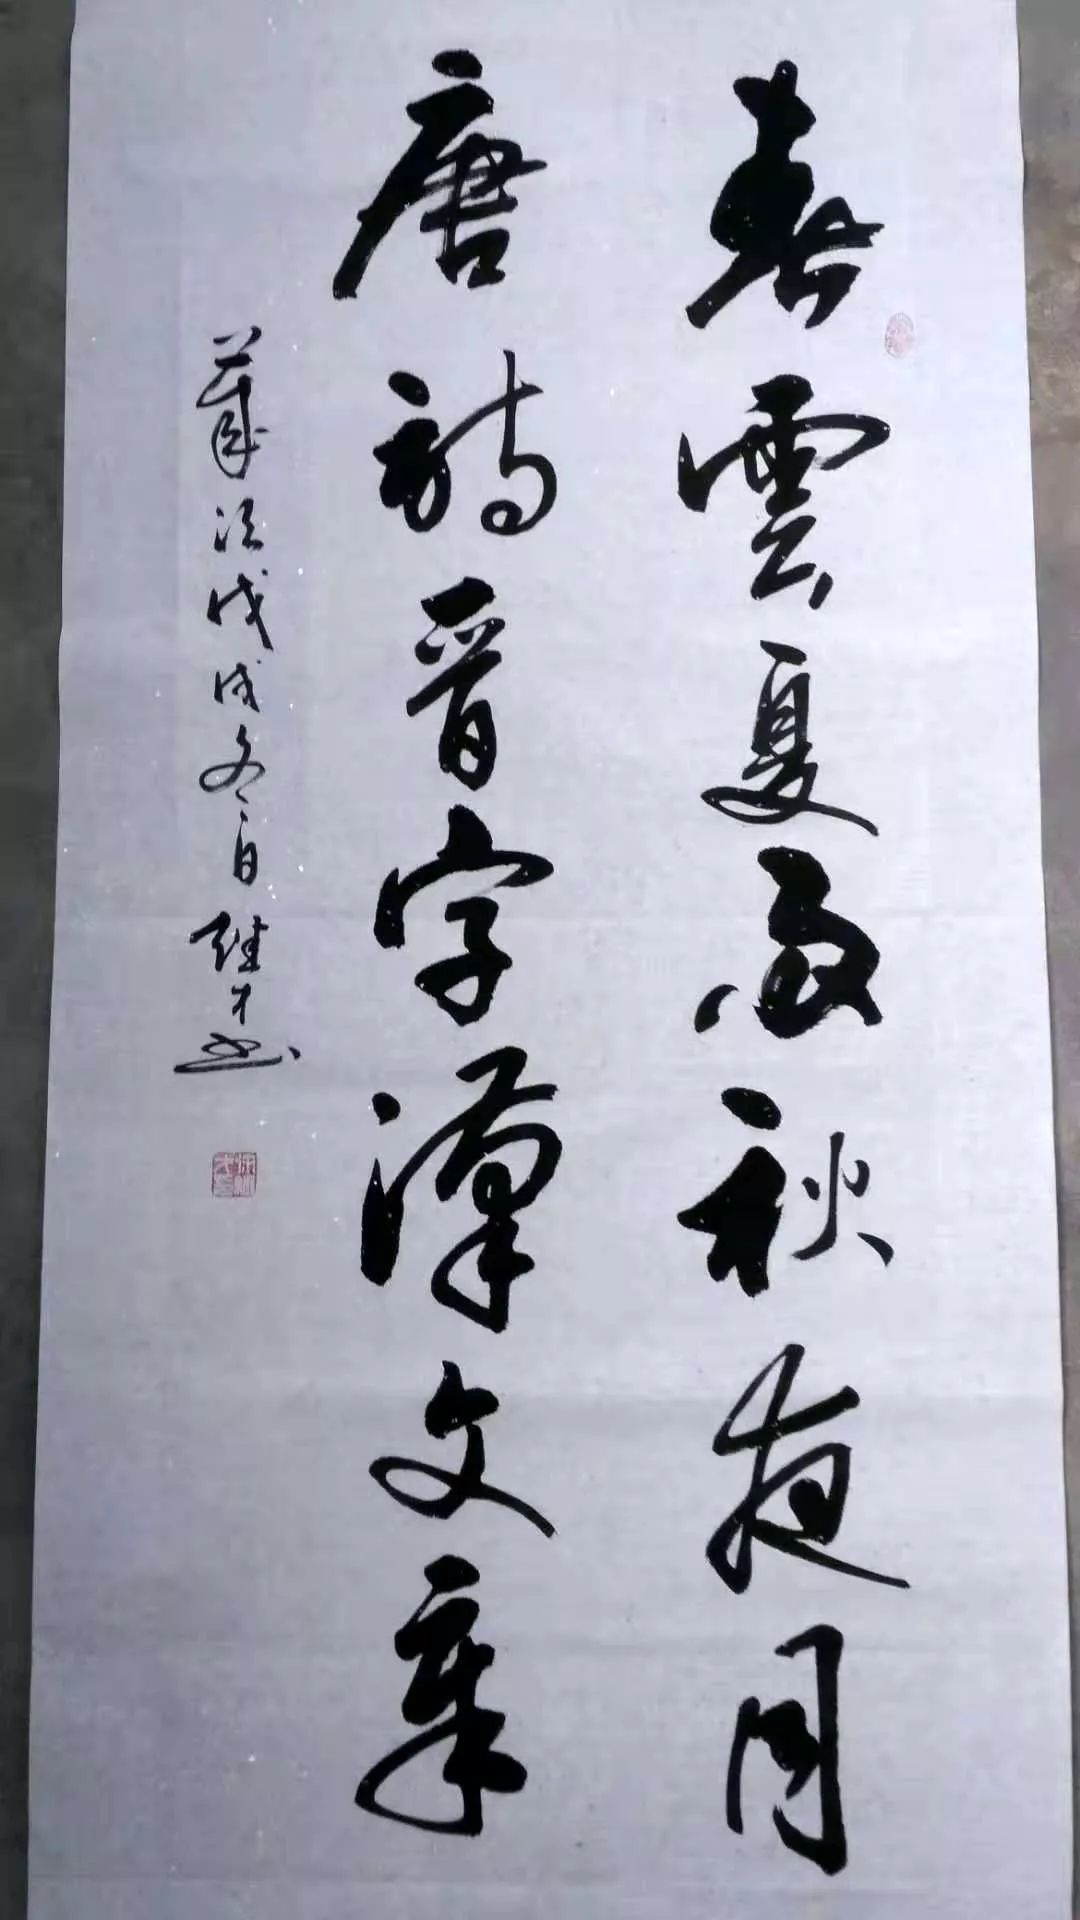 春雲夏雨秋夜月
唐詩晋字漢文章
歲次戊戌冬 才书